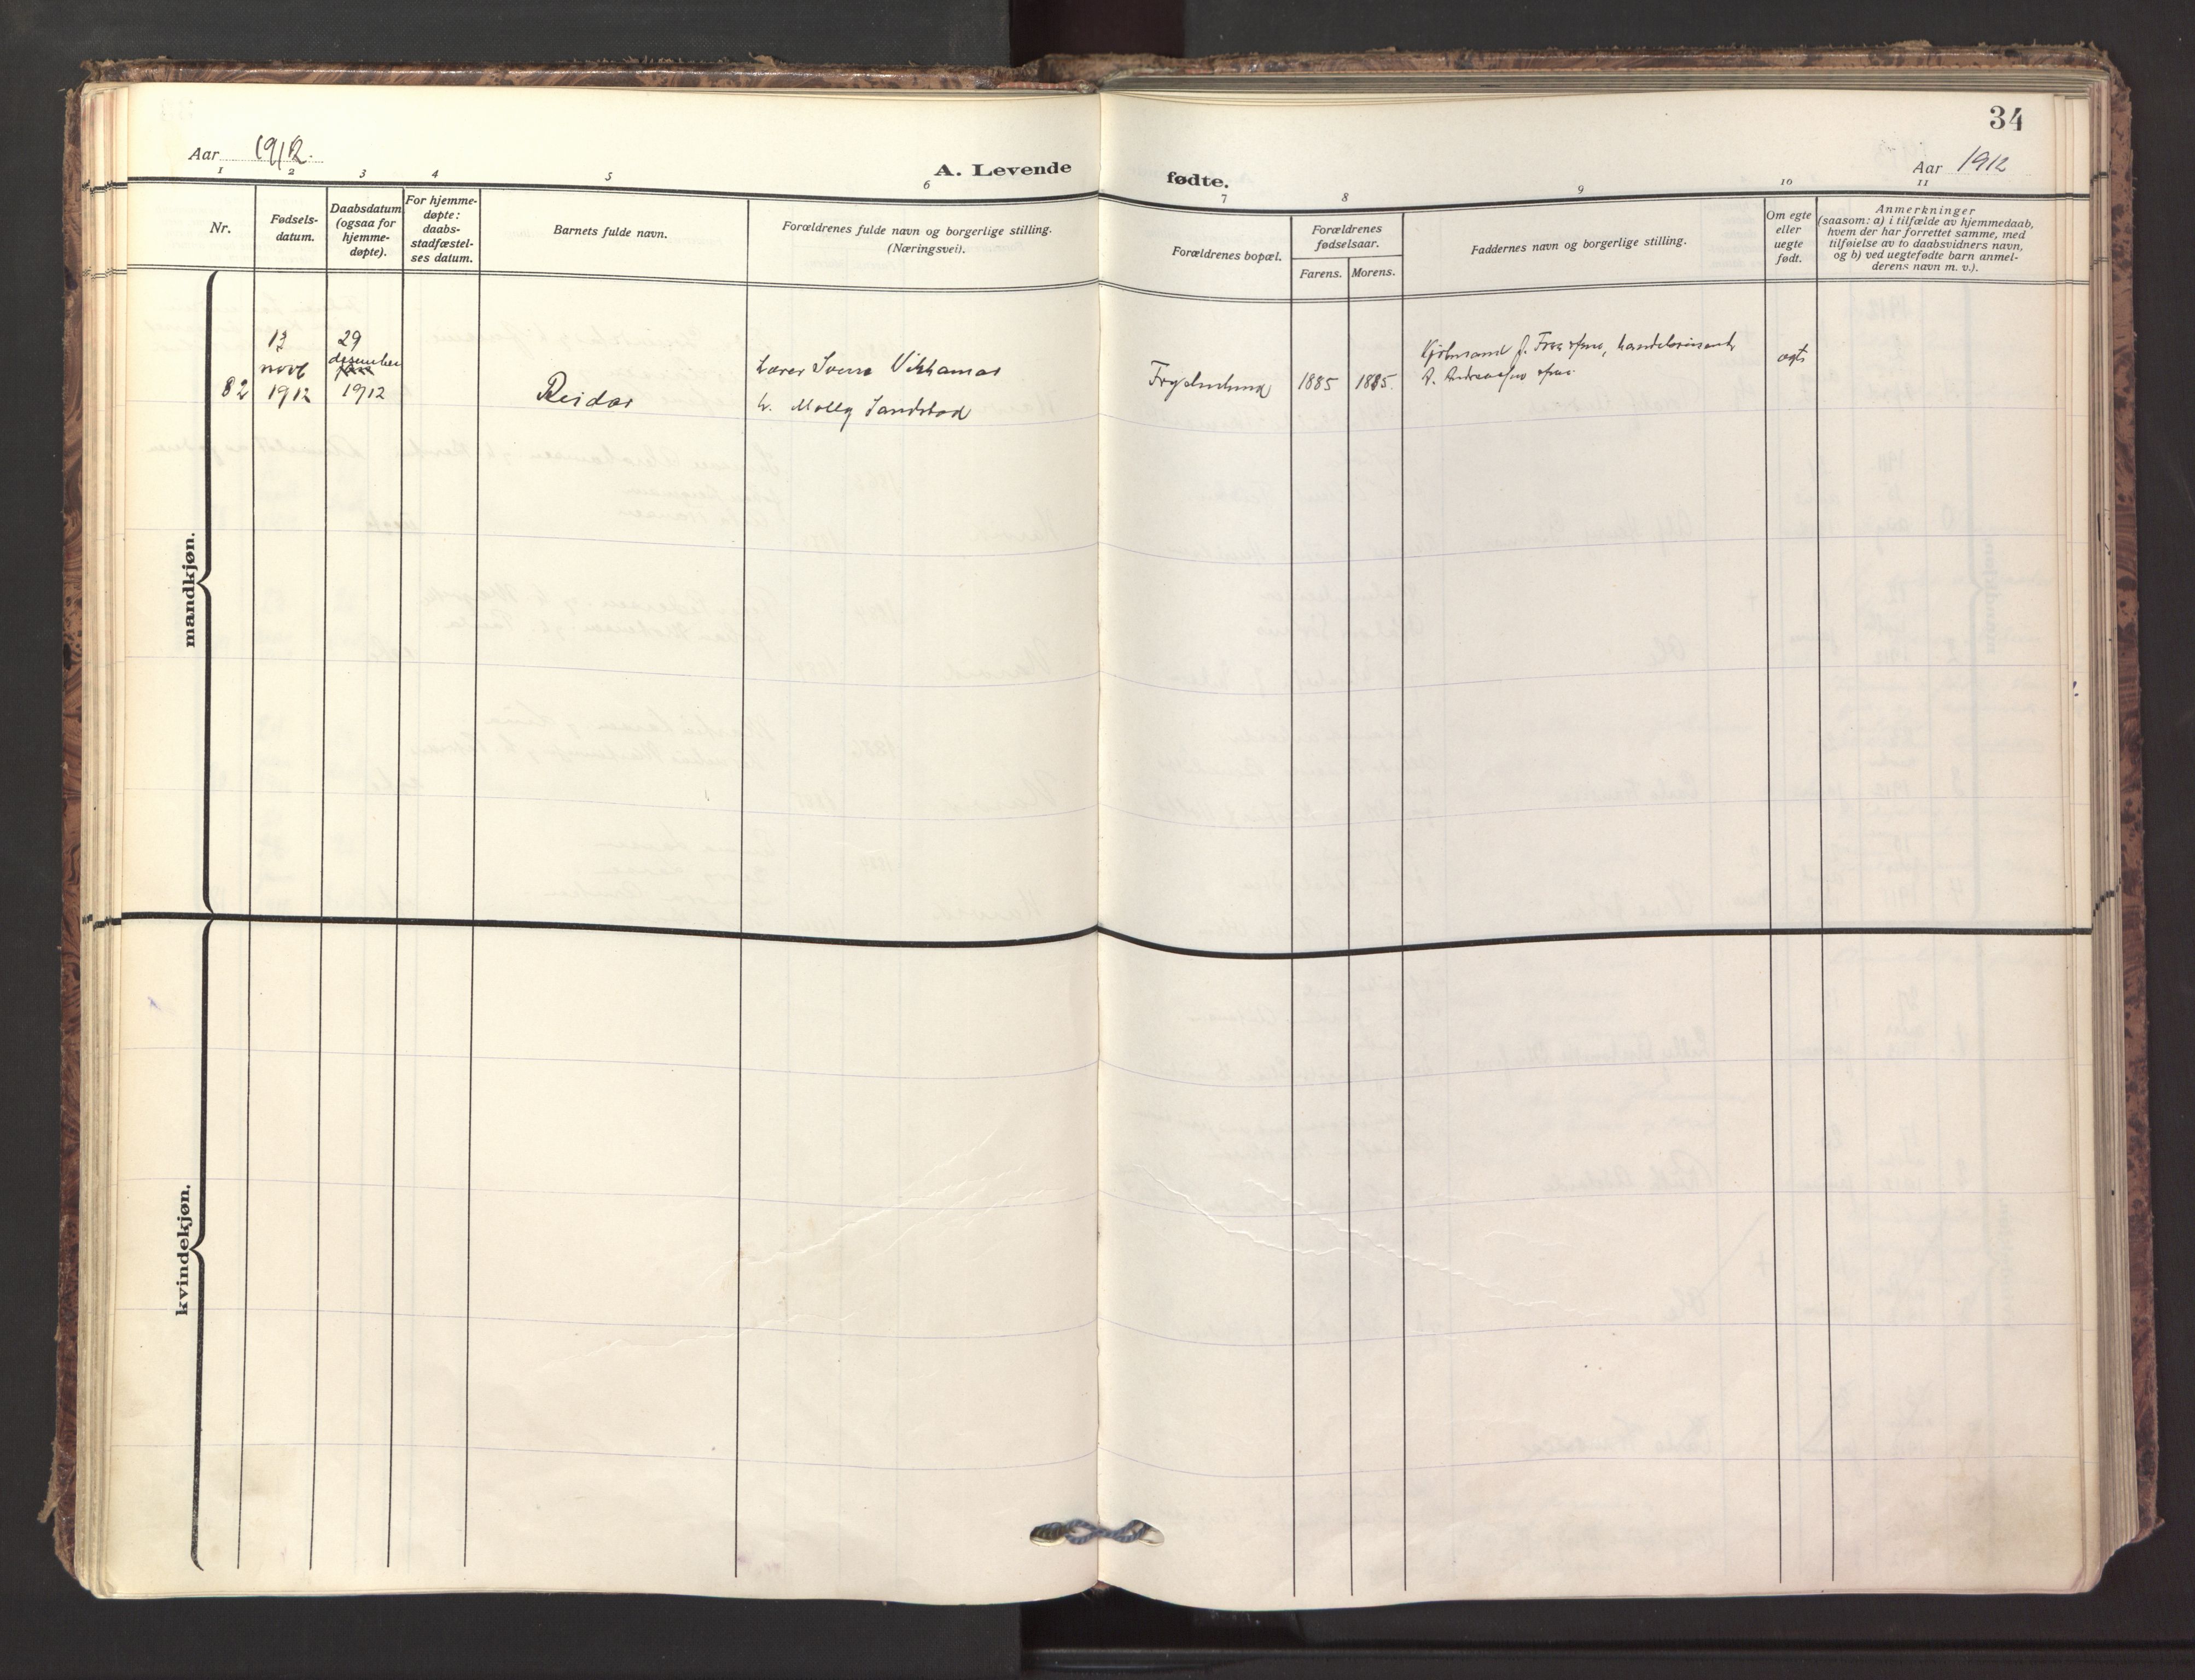 34
Aar 1912.
A. Levende
fødte.
Aar 1912
1 2 3 4 5 6 7 8 9 10 11
Nr.
Fødsels-
datum.
Daabsdatum
(ogsaa for
hjemme-
døpte).
For hjemme-
døpte:
daabs-
stadfæstel-
ses datum.
Barnets fulde navn.
Forældrenes fulde navn og borgerlige stilling.
(Næringsvei).
Forældrenes bopæl.
Forældrenes
fødselsaar.
Farens. Morens.
Faddernes navn og borgerlige stilling.
Om egte
eller
uegte
født.
Anmerkninger
(saasom: a) i tilfælde av hjemmedaab,
hvem der har forrettet samme, med
tilføielse av to daabsvidners navn,
og b) ved uegtefødte barn anmel-
derens navn m. v.).
mandkjøn.
82
13
nove
1912
29
desember
1912
Reidar
Lærer Sverre Vikhamar
h. Molly Sandstad
Frydenlund
1885
1885.
Kjøbmand J. hustru, handelsreisende
A.
egte
kvindekjøn.